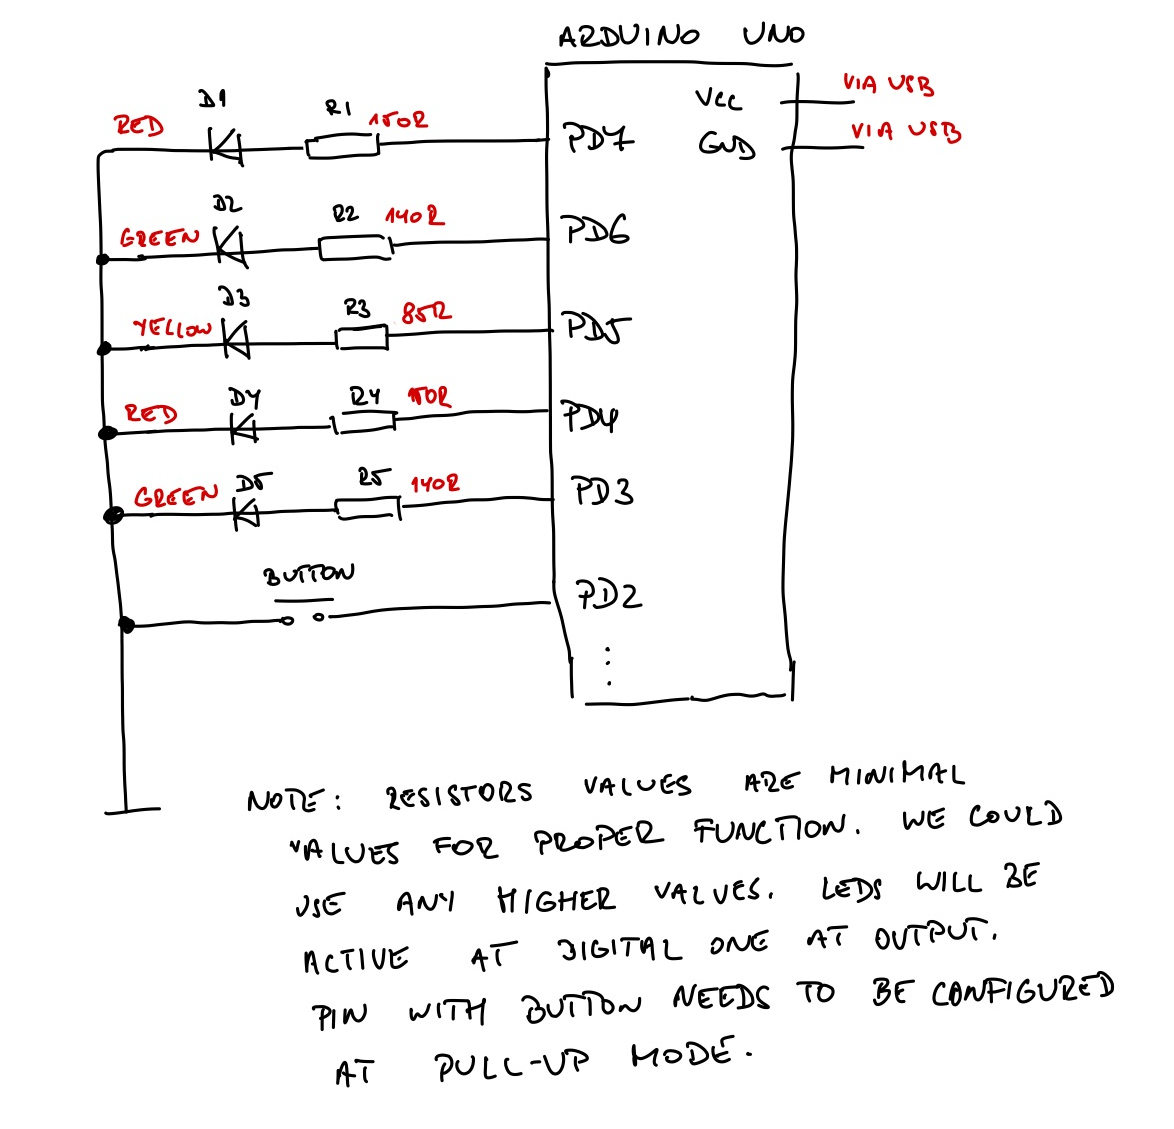 ARDUINO UNO
VCC VIA USB
GND VIA USB
RED D1 R1 150R PD7
GREEN D2 R2 140R PD6
YELLOW D3 R3 85R PD5
RED D4 R4 150R PD4
GREEN D5 R5 140R PD3
BUTTON PD2
NOTE: RESISTORS VALUES ARE MINIMAL
VALUES FOR PROPER FUNCTION. WE COULD
USE ANY HIGHER VALUES. LEDS WILL BE
ACTIVE AT DIGITAL ONE AT OUTPUT.
PIN WITH BUTTON NEEDS TO BE CONFIGURED
AT PULL-UP MODE.